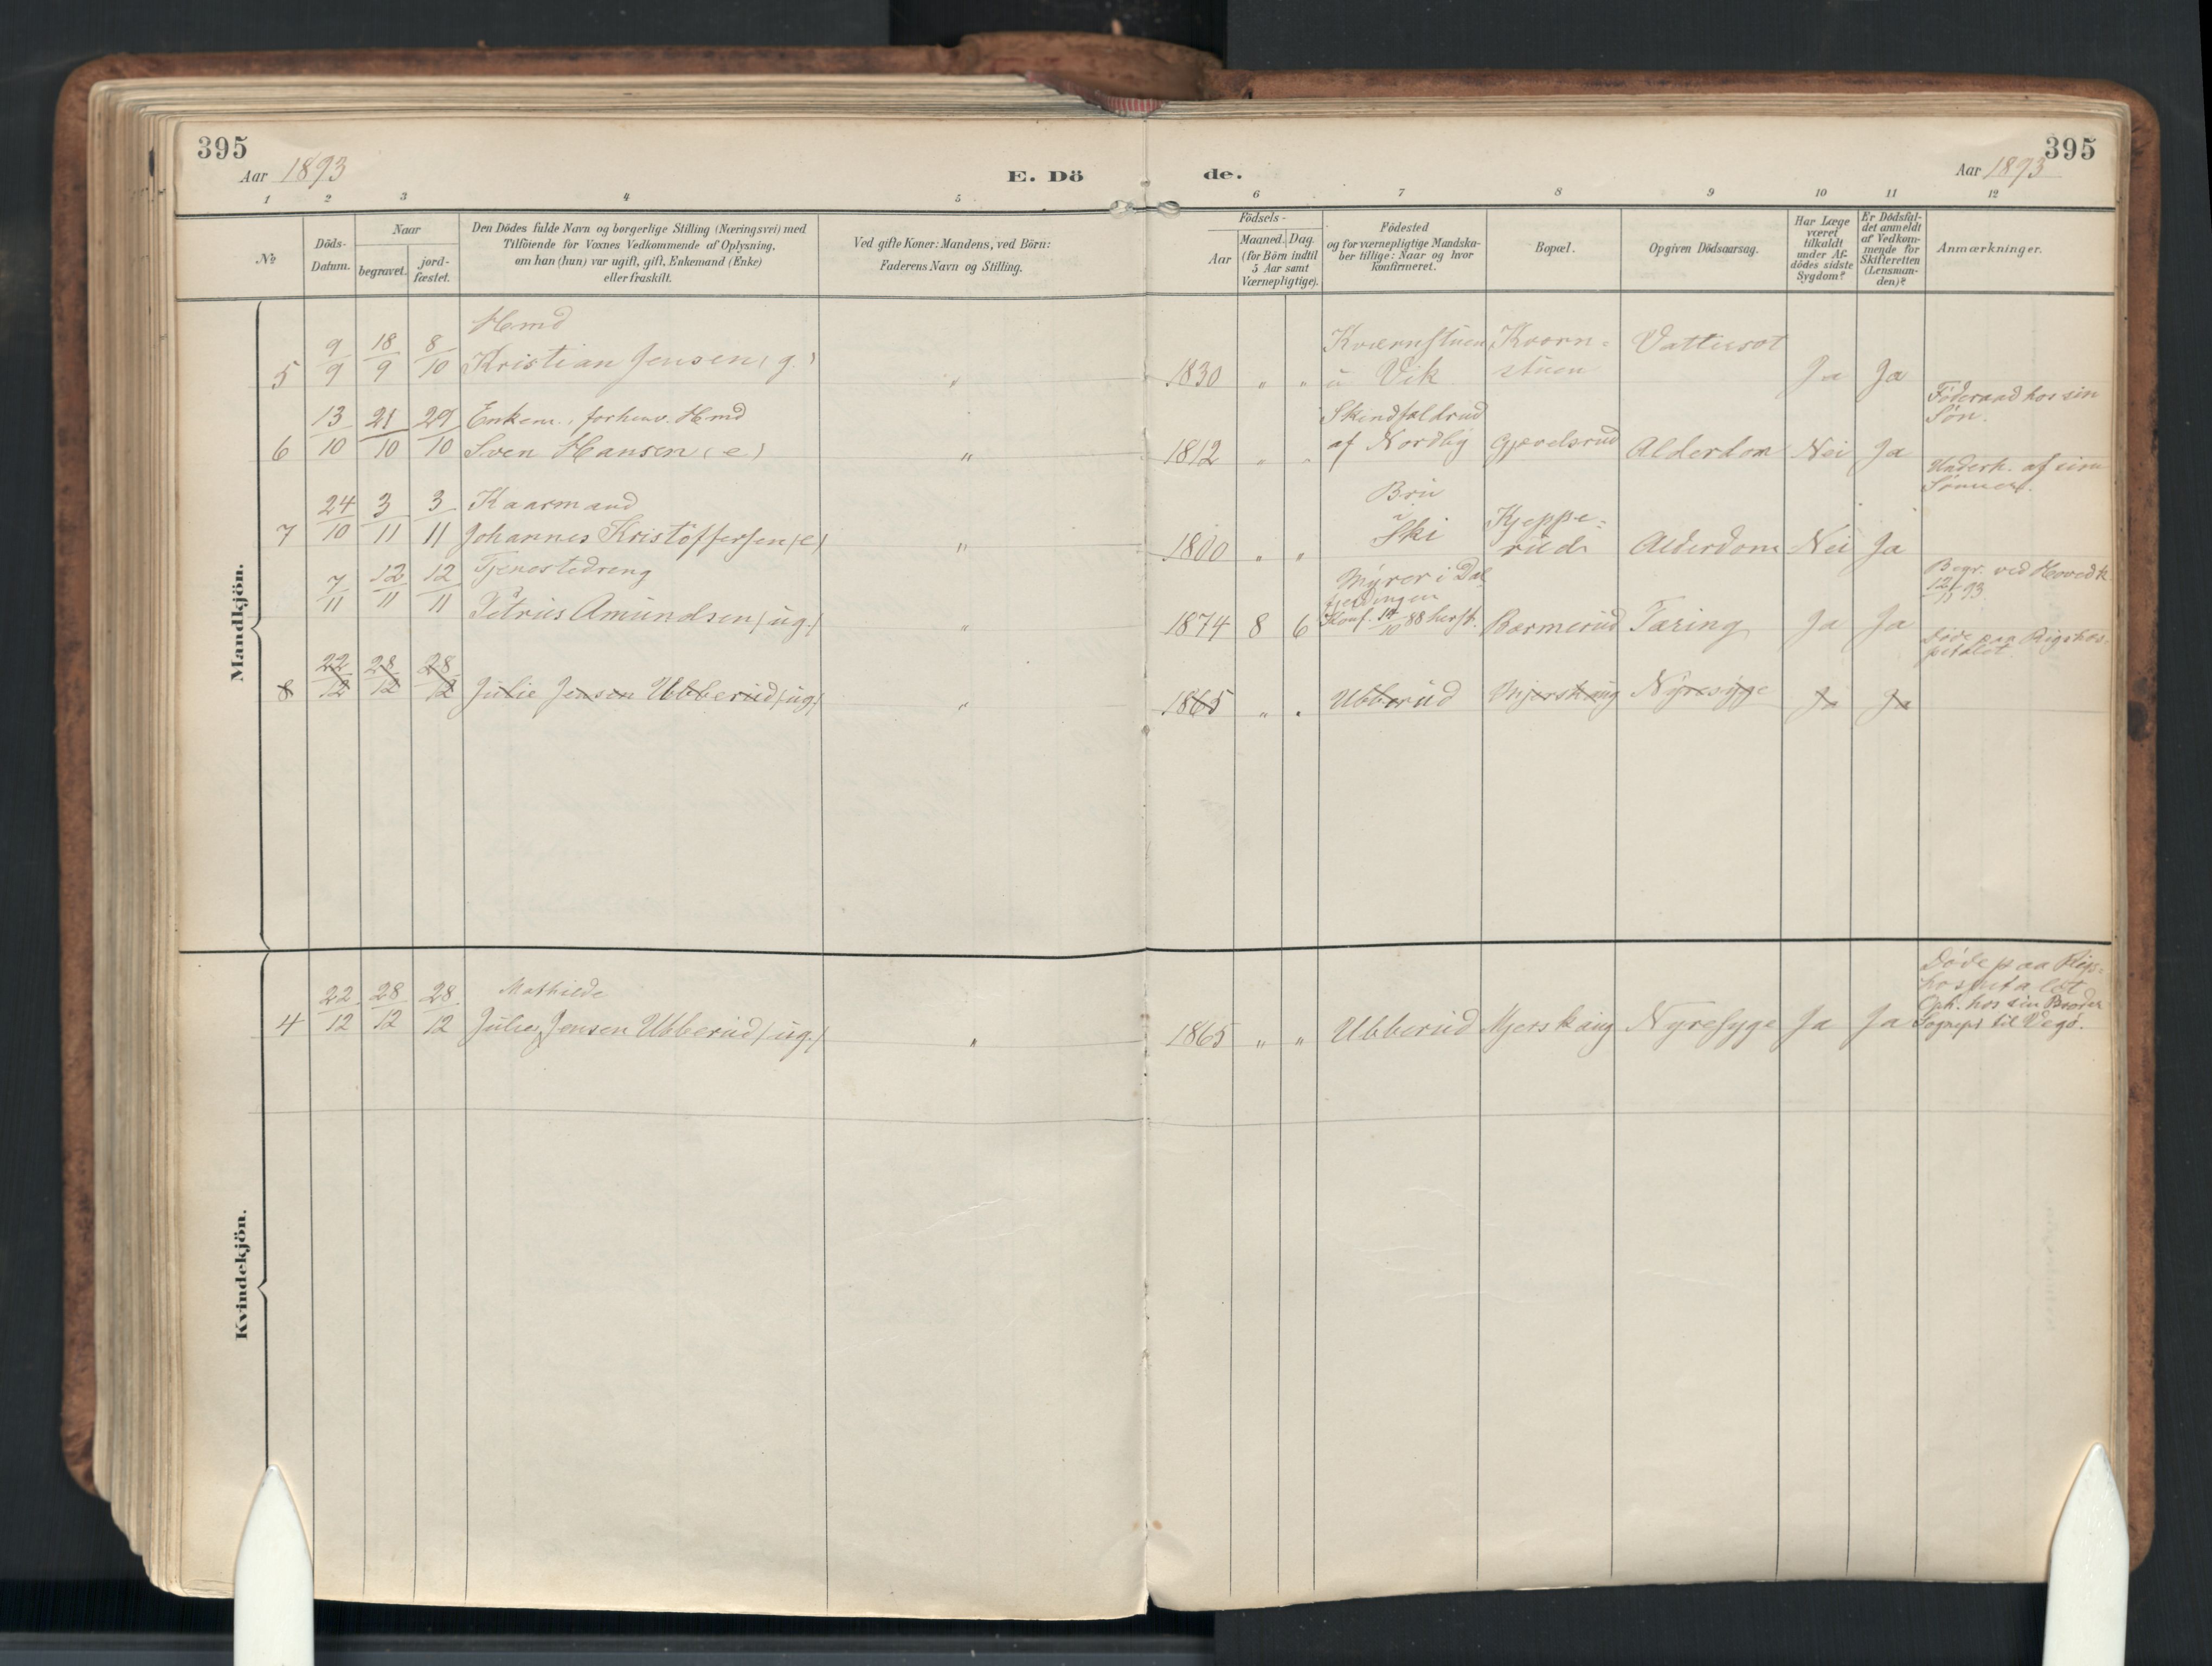 395
Aar 1893
E. Dö
de.
Aar 1893
395
1 2 3 4 5 6 7 8 9 10 11 12
No
Döds-
Datum.
Naar
begravet.
jord-
fæstet.
Den Dödes fulde Navn og borgerlige Stilling (Næringsvei) med
Tilföiende for Voxnes Vedkommende af Oplysning,
om han (hun) var ugift, gift, Enkemand (Enke)
eller fraskilt.
Ved gifte Koner: Mandens, ved Börn:
Faderens Navn og Stilling.
Födsels-
Aar
Maaned. Dag.
(for Börn indtil
5 Aar samt
Værnepligtige).
Födested
og for værnepligtige Mandska-
ber tillige: Naar og hvor
konfirmeret.
Bopæl.
Opgiven Dödsaarsag.
Har Læge
været
tilkaldt
under Af-
dödes sidste
Sygdom?
Er Dödsfal-
det anmeldt
af Vedkom-
mende for
Skifteretten
(Lensman-
den)?
Anmærkninger.
Mandkjön.
5 9/9 18/9 8/10 Hmd
Kristian Jensen (g.) " 1830 " " Kværnstuen
u Vik Kværn-
stuen Vattersot Ja Ja
6 13/10 21/10 29/10 Enkem., forhenv. Hmd
Sven Hansen (e) " 1812 " " Skindfaldrud
af Nordby Gjævelsrud Alderdom Nei Ja Föderaad hos sin
Søn.
7 24/10 3/11 3/11 Kaarmand
Johannes Kristoffersen (e) " 1800 " " Bru
i Ski Kjeppe-
rud Alderdom Nei Ja Underh. af sine
Sønner.
7/11 12/11 12/11 Tjenestedreng
Petrus Amundsen (ug.) " 1874 8 6 Myrer i Dal
fjerdingen
Konf. 14/10 88 herst. Bærmerud Tæring Ja Ja Begr. ved Hovedk.
12/11 93.
Døde paa Rigshos-
pitalet.
8 22/12 28/12 28/12 Julie Jensen Ubberud (ug.) " 1865 " " Ubberud Mjerskaug Nyresyge Ja Ja
Kvindekjön.
4 22/12 28/12 28/12 Mathilde
Julie Jensen Ubberud (ug.) " 1865 " " Ubberud Mjerskaug Nyresyge Ja Ja Døde paa Rigs-
hospitalet
Oph. hos sin Broder
Sognepr. til Vegø.